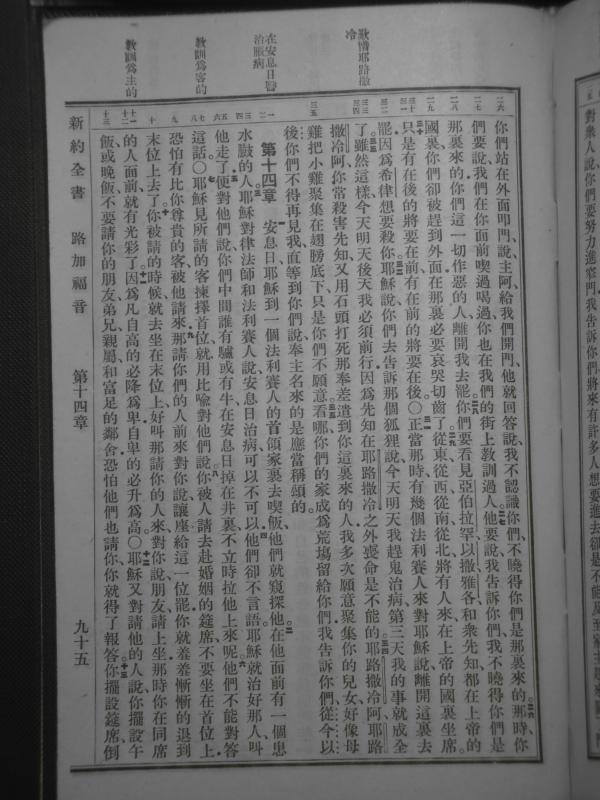 歎惜耶路撒
冷
在安息日醫
治臌病
教訓爲客的
教訓爲主的
你們站在外面叩門、說主阿給我們開門、他就回答說、我不認識你們、不曉得你們是那裏來的那時你
們要說我們在你面前喫過喝過你也在我們的街上教訓過人他要說我告訴你們我不曉得你們是
那裏來的你們這一切作惡的人離開我去罷你們要看見亞伯拉罕以撒雅各和衆先知都在上帝的
國裏你們卻被趕到外面在那裏必要哀哭切齒了從東從西從南從北將有人來在上帝的國裏坐席
只是有在後的將要在前有在前的將要在後○正當那時有幾個法利賽人來對耶穌說離開這裏去
罷因爲希律想要殺你耶穌說你們去告訴那個狐狸說今天明天我趕鬼治病第三天我的事就成全
了雖然這樣今天明天後天我必須前行因爲先知在耶路撒冷之外喪命是不能的耶路撒冷阿耶路
撒冷阿你常殺害先知又用石頭打死那奉差遣到你這裏來的人我多次願意聚集你的兒女好像母
雞把小雞聚集在翅膀底下只是你們不願意看哪你們的家成爲荒塲留給你們我告訴你們從今以
後你們不得再見我直等到你們說奉主名來的是應當稱頌的
第十四章 安息日耶穌到一個法利賽人的首領家裏去喫飯他們就窺探他在他面前有一個患
水臌的人耶穌對律法師和法利賽人說安息日治病可以不可以他們卻不言語耶穌就治好那人叫
他走了便對他們說你們中間誰有驢或有牛在安息日掉在井裏不立時拉他上來呢他們不能對答
這話○耶穌見所請的客揀擇首位就用比喩對他們說你被人請去赴婚姻的筵席不要坐在首位上
恐怕有比你尊貴的客被他請來那請你們的人前來對你說讓座給這一位罷你就羞羞慚慚的退到
末位上去了你被請的時候就去坐在末位上好叫那請你的人來對你說朋友請上坐那時你在同席
的人面前就有光彩了因爲凡自高的必降爲卑自卑的必升爲高○耶穌又對請他的人說你擺設午
飯或晚飯不要請你的朋友弟兄親屬和富足的鄰舍恐怕他們也請你你就得了報答你擺設筵席倒
新約全書 路加福音 第十四章 九十五